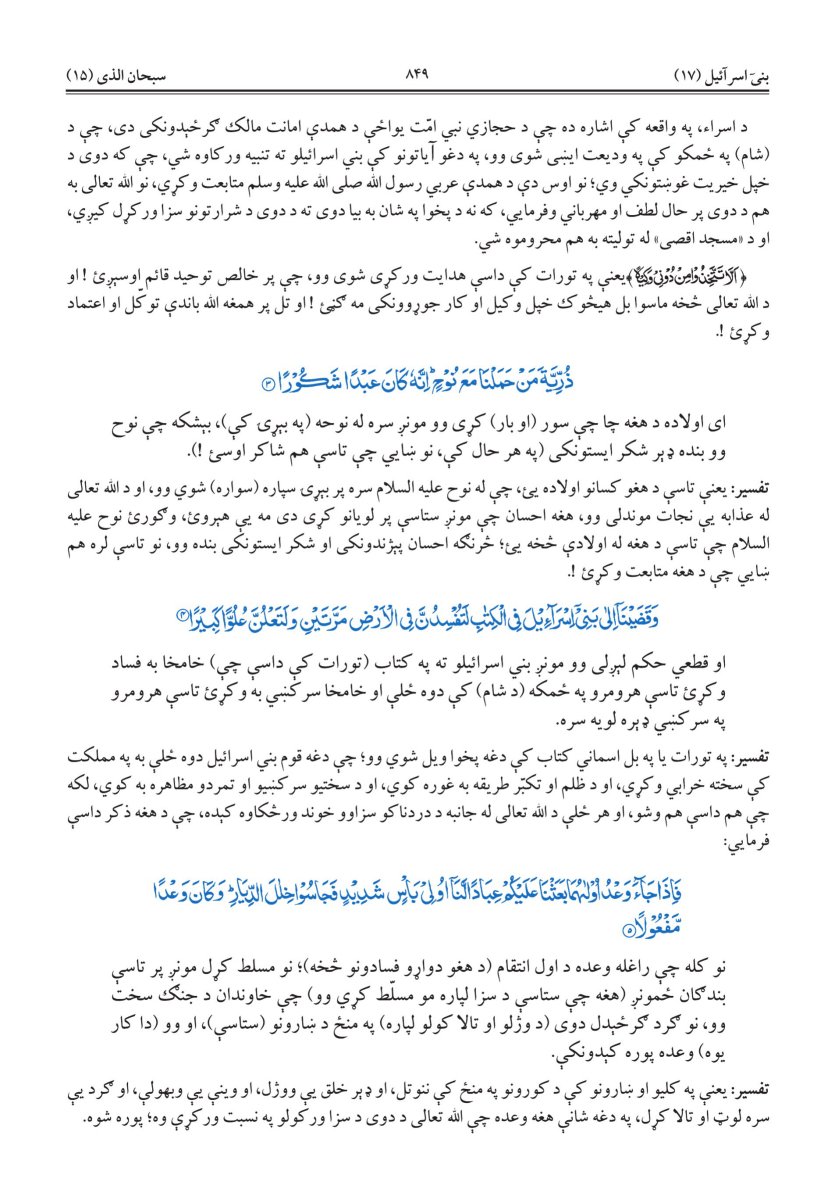 بنیٓ اسرآئیل (۱۷) ۸۴۹ سبحان الذی (۱۵)
د اسراء، په واقعه كې اشاره ده چې د حجازي نبي امّت يواځې د همدې امانت مالك ګرځېدونكی دی، چې د
(شام) په ځمكو كې په وديعت ايښی شوی وو، په دغو آياتونو كې بني اسرائيلو ته تنبيه وركاوه شي، چې كه دوی د
خپل خيريت غوښتونكي وي؛ نو اوس دې د همدې عربي رسول الله صلی الله عليه وسلم متابعت وكړي، نو الله تعالی به
هم د دوی پر حال لطف او مهرباني وفرمايي، كه نه د پخوا په شان به بيا دوی ته د دوی د شرارتونو سزا وركړل كيږي،
او د «مسجد اقصی» له توليته به هم محروموه شي.
﴿اَلَّا تَتَّخِذُوْا مِنْ دُوْنِیْ وَكِیْلًا﴾يعنې په تورات كې داسې هدايت وركړی شوی وو، چې پر خالص توحيد قائم اوسېږئ ! او
د الله تعالی څخه ماسوا بل هيڅوك خپل وكيل او كار جوړوونكی مه ګڼئ ! او تل پر همغه الله باندې توكّل او اعتماد
وكړئ !.
ذُرِّیَّةَ مَنْ حَمَلْنَا مَعَ نُوْحٍ ؕ اِنَّهٗ كَانَ عَبْدًا شَكُوْرًا ﴿۳﴾
ای اولاده د هغه چا چې سور (او بار) كړی وو مونږ سره له نوحه (په بېړۍ كې)، بېشكه چې نوح
وو بنده ډېر شكر ايستونكی (په هر حال كې، نو ښايي چې تاسې هم شاكر اوسئ !).
تفسير: يعنې تاسې د هغو كسانو اولاده يئ، چې له نوح عليه السلام سره پر بېړۍ سپاره (سواره) شوي وو، او د الله تعالی
له عذابه يې نجات موندلی وو، هغه احسان چې مونږ ستاسې پر لويانو كړی دی مه يې هېروئ، وګورئ نوح عليه
السلام چې تاسې د هغه له اولادې څخه يئ؛ څرنګه احسان پېژندونكی او شكر ايستونكی بنده وو، نو تاسې لره هم
ښايي چې د هغه متابعت وكړئ !.
وَقَضَیْنَاۤ اِلٰی بَنِیْۤ اِسْرَآءِیْلَ فِی الْكِتٰبِ لَتُفْسِدُنَّ فِی الْاَرْضِ مَرَّتَیْنِ وَلَتَعْلُنَّ عُلُوًّا كَبِیْرًا ﴿۴﴾
او قطعي حكم لېږلی وو مونږ بني اسرائيلو ته په كتاب (تورات كې داسې چې) خامخا به فساد
وكړئ تاسې هرومرو په ځمكه (د شام) كې دوه ځلې او خامخا سركښي به وكړئ تاسې هرومرو
په سركښي ډېره لويه سره.
تفسير: په تورات يا په بل اسماني كتاب كې دغه پخوا ويل شوي وو؛ چې دغه قوم بني اسرائيل دوه ځلې به په مملكت
كې سخته خرابي وكړي، او د ظلم او تكبّر طريقه به غوره كوي، او د سختيو سركښيو او تمردو مظاهره به كوي، لكه
چې هم داسې هم وشو، او هر ځلې د الله تعالی له جانبه د دردناكو سزاوو خوند ورڅكاوه كېده، چې د هغه ذكر داسې
فرمايي:
فَاِذَا جَآءَ وَعْدُ اُوْلٰىهُمَا بَعَثْنَا عَلَیْكُمْ عِبَادًا لَّنَاۤ اُولِیْ بَاْسٍ شَدِیْدٍ فَجَاسُوْا خِلٰلَ الدِّیَارِ ؕ وَكَانَ وَعْدًا
مَّفْعُوْلًا ﴿۵﴾
نو كله چې راغله وعده د اول انتقام (د هغو دواړو فسادونو څخه)؛ نو مسلط كړل مونږ پر تاسې
بندګان ځمونږ (هغه چې ستاسې د سزا لپاره مو مسلّط كړي وو) چې خاوندان د جنګ سخت
وو، نو ګرد ګرځېدل دوی (د وژلو او تالا كولو لپاره) په منځ د ښارونو (ستاسې)، او وو (دا كار
يوه) وعده پوره كېدونكې.
تفسير: يعنې په كليو او ښارونو كې د كورونو په منځ كې ننوتل، او ډېر خلق يې ووژل، او وينې يې وبهولې، او ګرد يې
سره لوټ او تالا كړل، په دغه شانې هغه وعده چې الله تعالی د دوی د سزا وركولو په نسبت وركړې وه؛ پوره شوه.